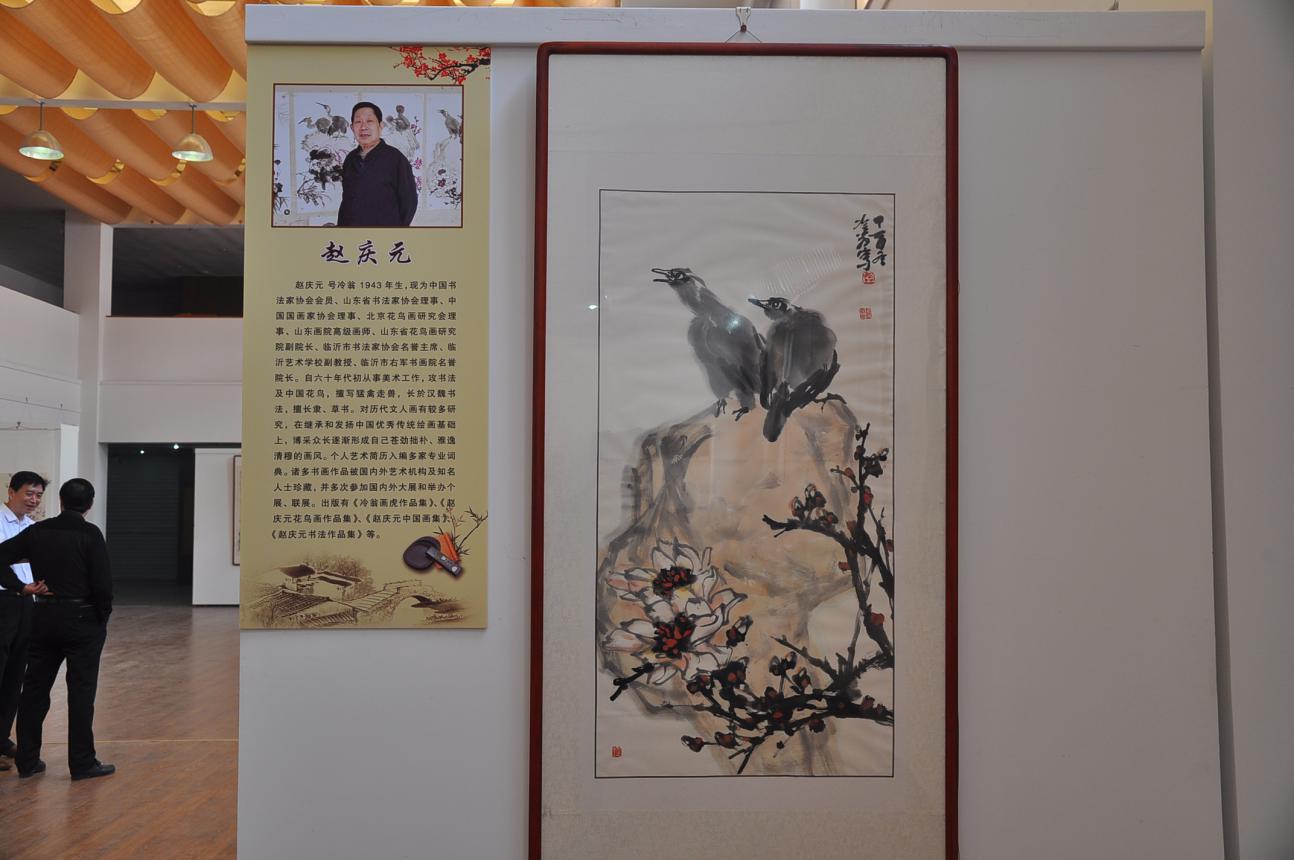 赵庆元
赵庆元 号冷翁 1943 年生，现为中国书
法家协会会员、山东省书法家协会理事、中
国国画家协会理事、北京花鸟画研究会理
事、山东画院高级画师、山东省花鸟画研究
院副院长、临沂市书法家协会名誉主席、临
沂艺术学校副教授、临沂市右军书画院名誉
院长。自六十年代初从事美术工作，攻书法
及中国花鸟，擅写猛禽走兽，长於汉魏书
法，擅长隶、草书。对历代文人画有较多研
究，在继承和发扬中国优秀传统绘画基础
上，博采众长逐渐形成自己苍劲拙朴、雅逸
清穆的画风。个人艺术简历入编多家专业词
典。诸多书画作品被国内外艺术机构及知名
人士珍藏，并多次参加国内外大展和举办个
展、联展。出版有《冷翁画虎作品集》、《赵
庆元花鸟画作品集》、《赵庆元中国画集》、
《赵庆元书法作品集》等。